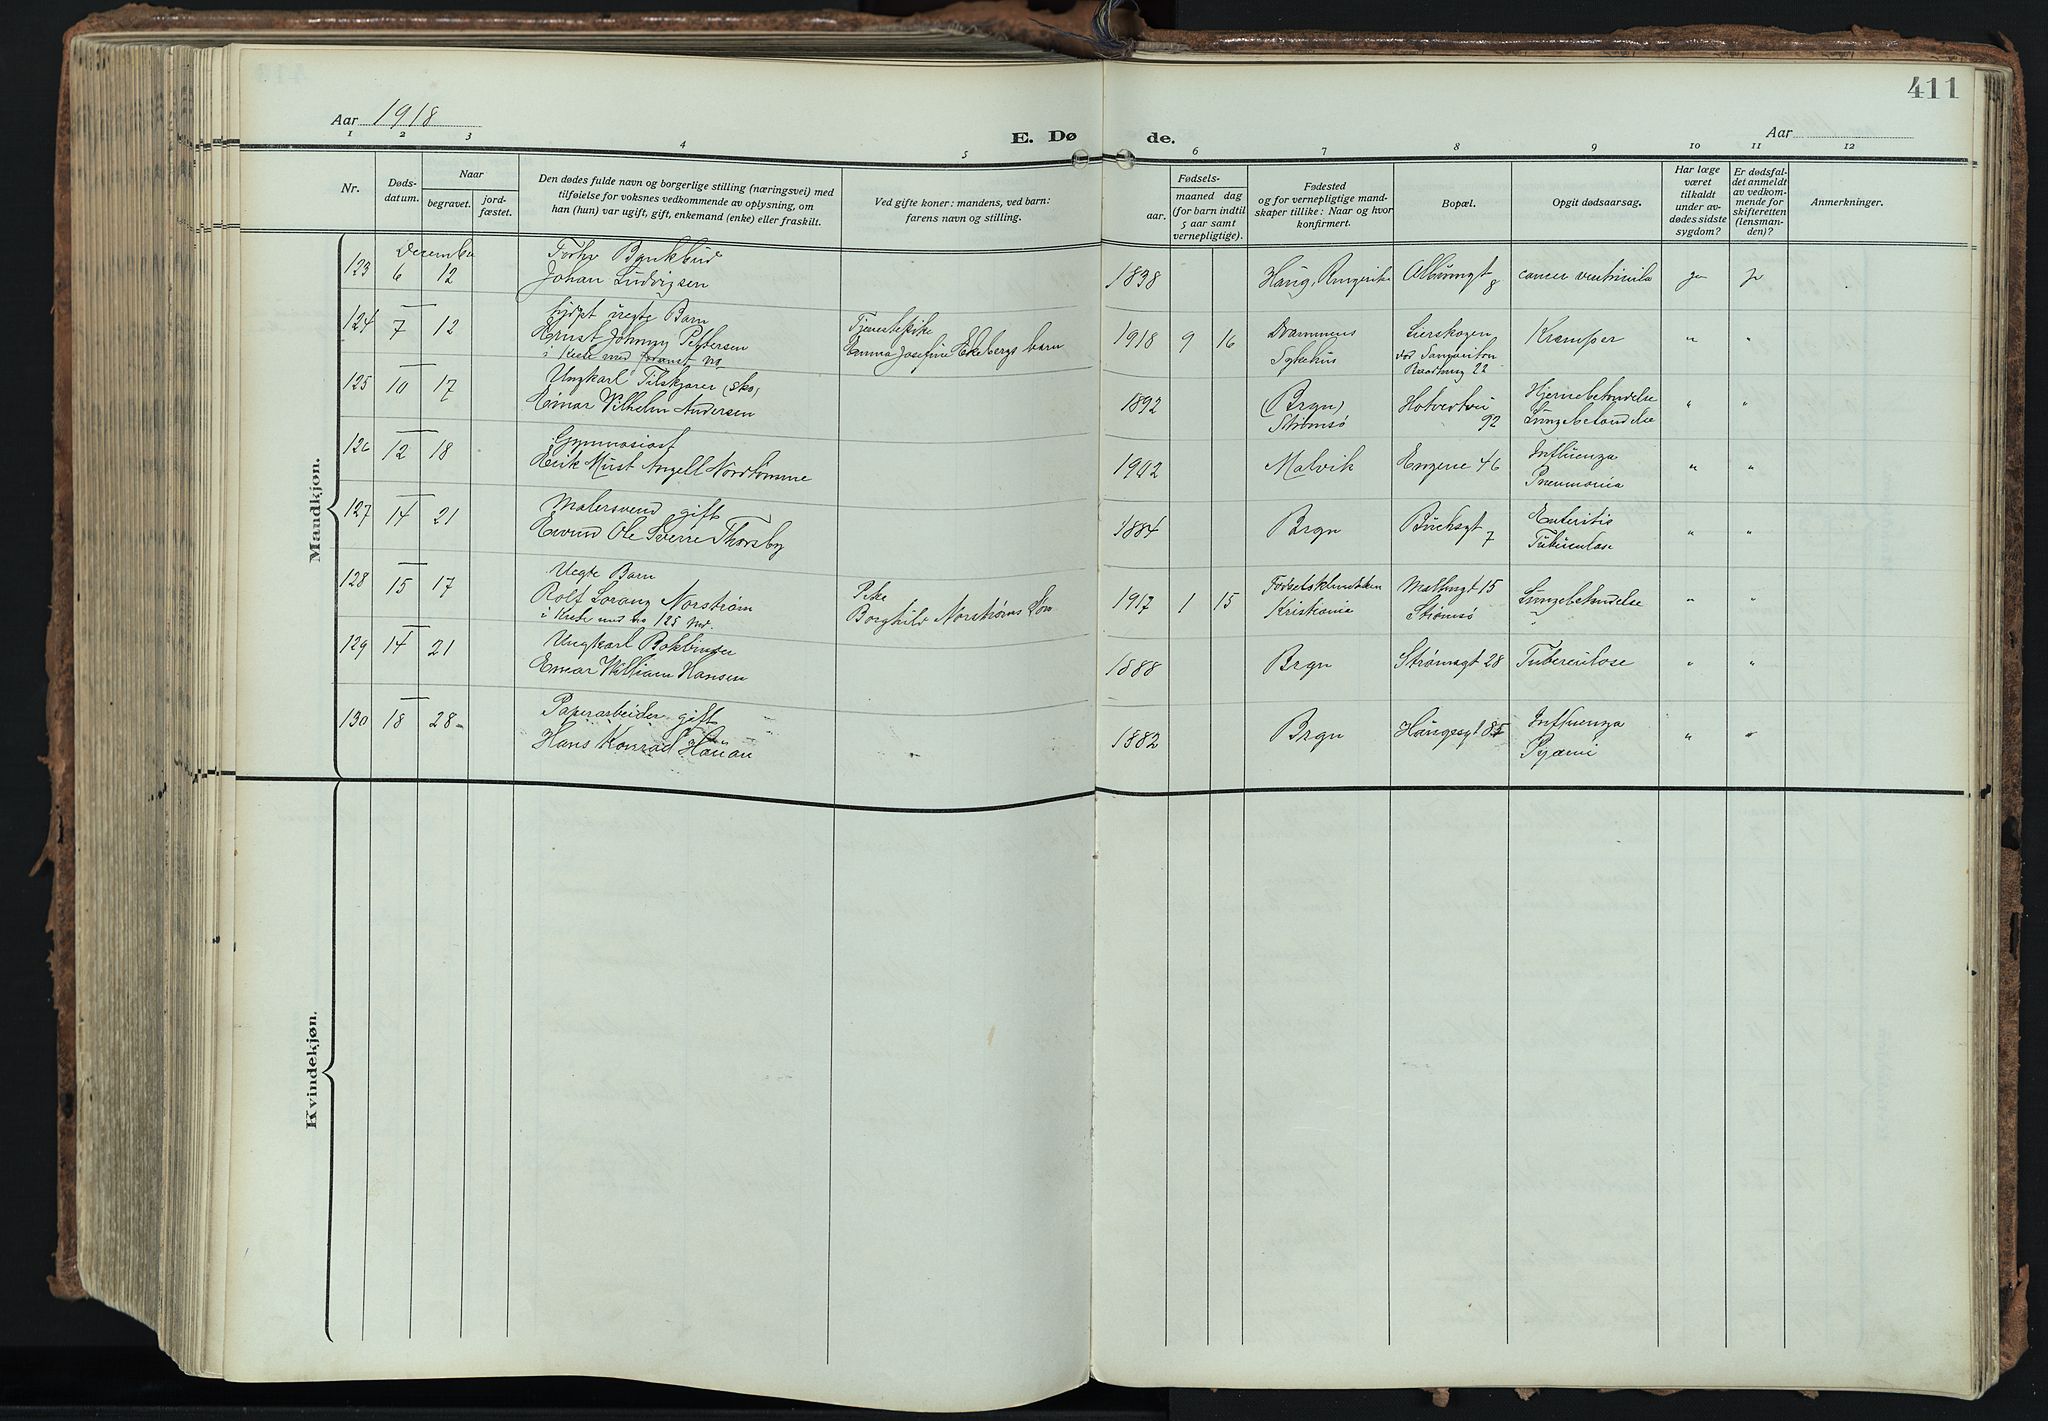 411
Aar 1918
E. Dø
de.
Aar
1 2 3 4 5 6 7 8 9 10 11 12
Nr.
Døds-
datum.
Naar
begravet.
jord-
fæstet.
Den dødes fulde navn og borgerlige stilling (næringsvei) med
tilføielse for voksnes vedkommende av oplysning, om
han (hun) var ugift, gift, enkemand (enke) eller fraskilt.
Ved gifte koner: mandens, ved barn:
farens navn og stilling.
Fødsels-
aar.
maaned dag
(for barn indtil
5 aar samt
vernepligtige).
Fødested
og for vernepligtige mand-
skaper tillike: Naar og hvor
konfirmert.
Bopæl.
Opgit dødsaarsag.
Har læge
været
tilkaldt
under av-
dødes sidste
sygdom?
Er dødsfal-
det anmeldt
av vedkom-
mende for
skifteretten
(lensman-
den)?
Anmerkninger.
Mandkjøn.
December
123 6 12
Forhv Bankbud
Johan Ludvigsen
1838 Haug, Ringerike
8
cancer ventriculi
ja ja
124 7 12
uegte Barn
Ernst Johnny Pettersen
i Kiste med
Tjenestepike
Emma Josefine Ekebergs barn
1918 9 16
Drammens
Sykehus
Lierskogen
22
Kramper
" "
125 10 17
Ungkarl Tilskjærer (sko)
Einar Vilhelm Andersen
1892
(Brgn)
Strømsø
92
Hjernebetændelse
Lungebetændelse
" "
126 12 18
Gymnasiast
Erik Must Angell Nordtømme
1902 Malvik Engene 46
Influenza
Pneumonia
" "
127 14 21
Malersvend gift
Eivind Ole Sverre Thorsby
1884 Brgn
7
Enteritis
Tuberculose
" "
128 15 17
Uegte Barn
Rolf Lorang Norstrøm
i Kiste med no 125
Pike
Borghild Norstrøms Søn
1917 1 15
Fødselsklinikken
Kristiania
15
Strømsø
Lungebetændelse
" "
129 14 21
Ungkarl Bokbinder
Einar William Hansen
1888 Brgn Strømsgt 28 Tuberculose
" "
130 18 28
Papirarbeider gift
Hans Konrad Hauan
1882 Brgn Haugesgt 85
Influenza
Pyæmi
" "
Kvindekjøn.